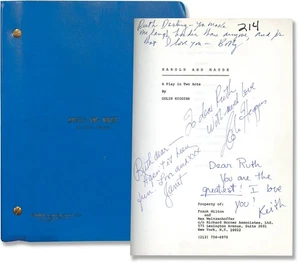 Ruth Darling - You made
me laugh harder than anyone, and for
that I love you - Betty
214
HAROLD AND MAUDE
A Play in Two Acts
By
COLIN HIGGINS
To dear Ruth
with much love
Colin Higgins
Ruth dear
Janet
Dear Ruth
You are the
greatest! I love
you!
Keith
Property of:
Frank Milton
and
Max Weitzenhoffer
c/o Richard Horner Associates, Ltd.
New York, N.Y. 10022